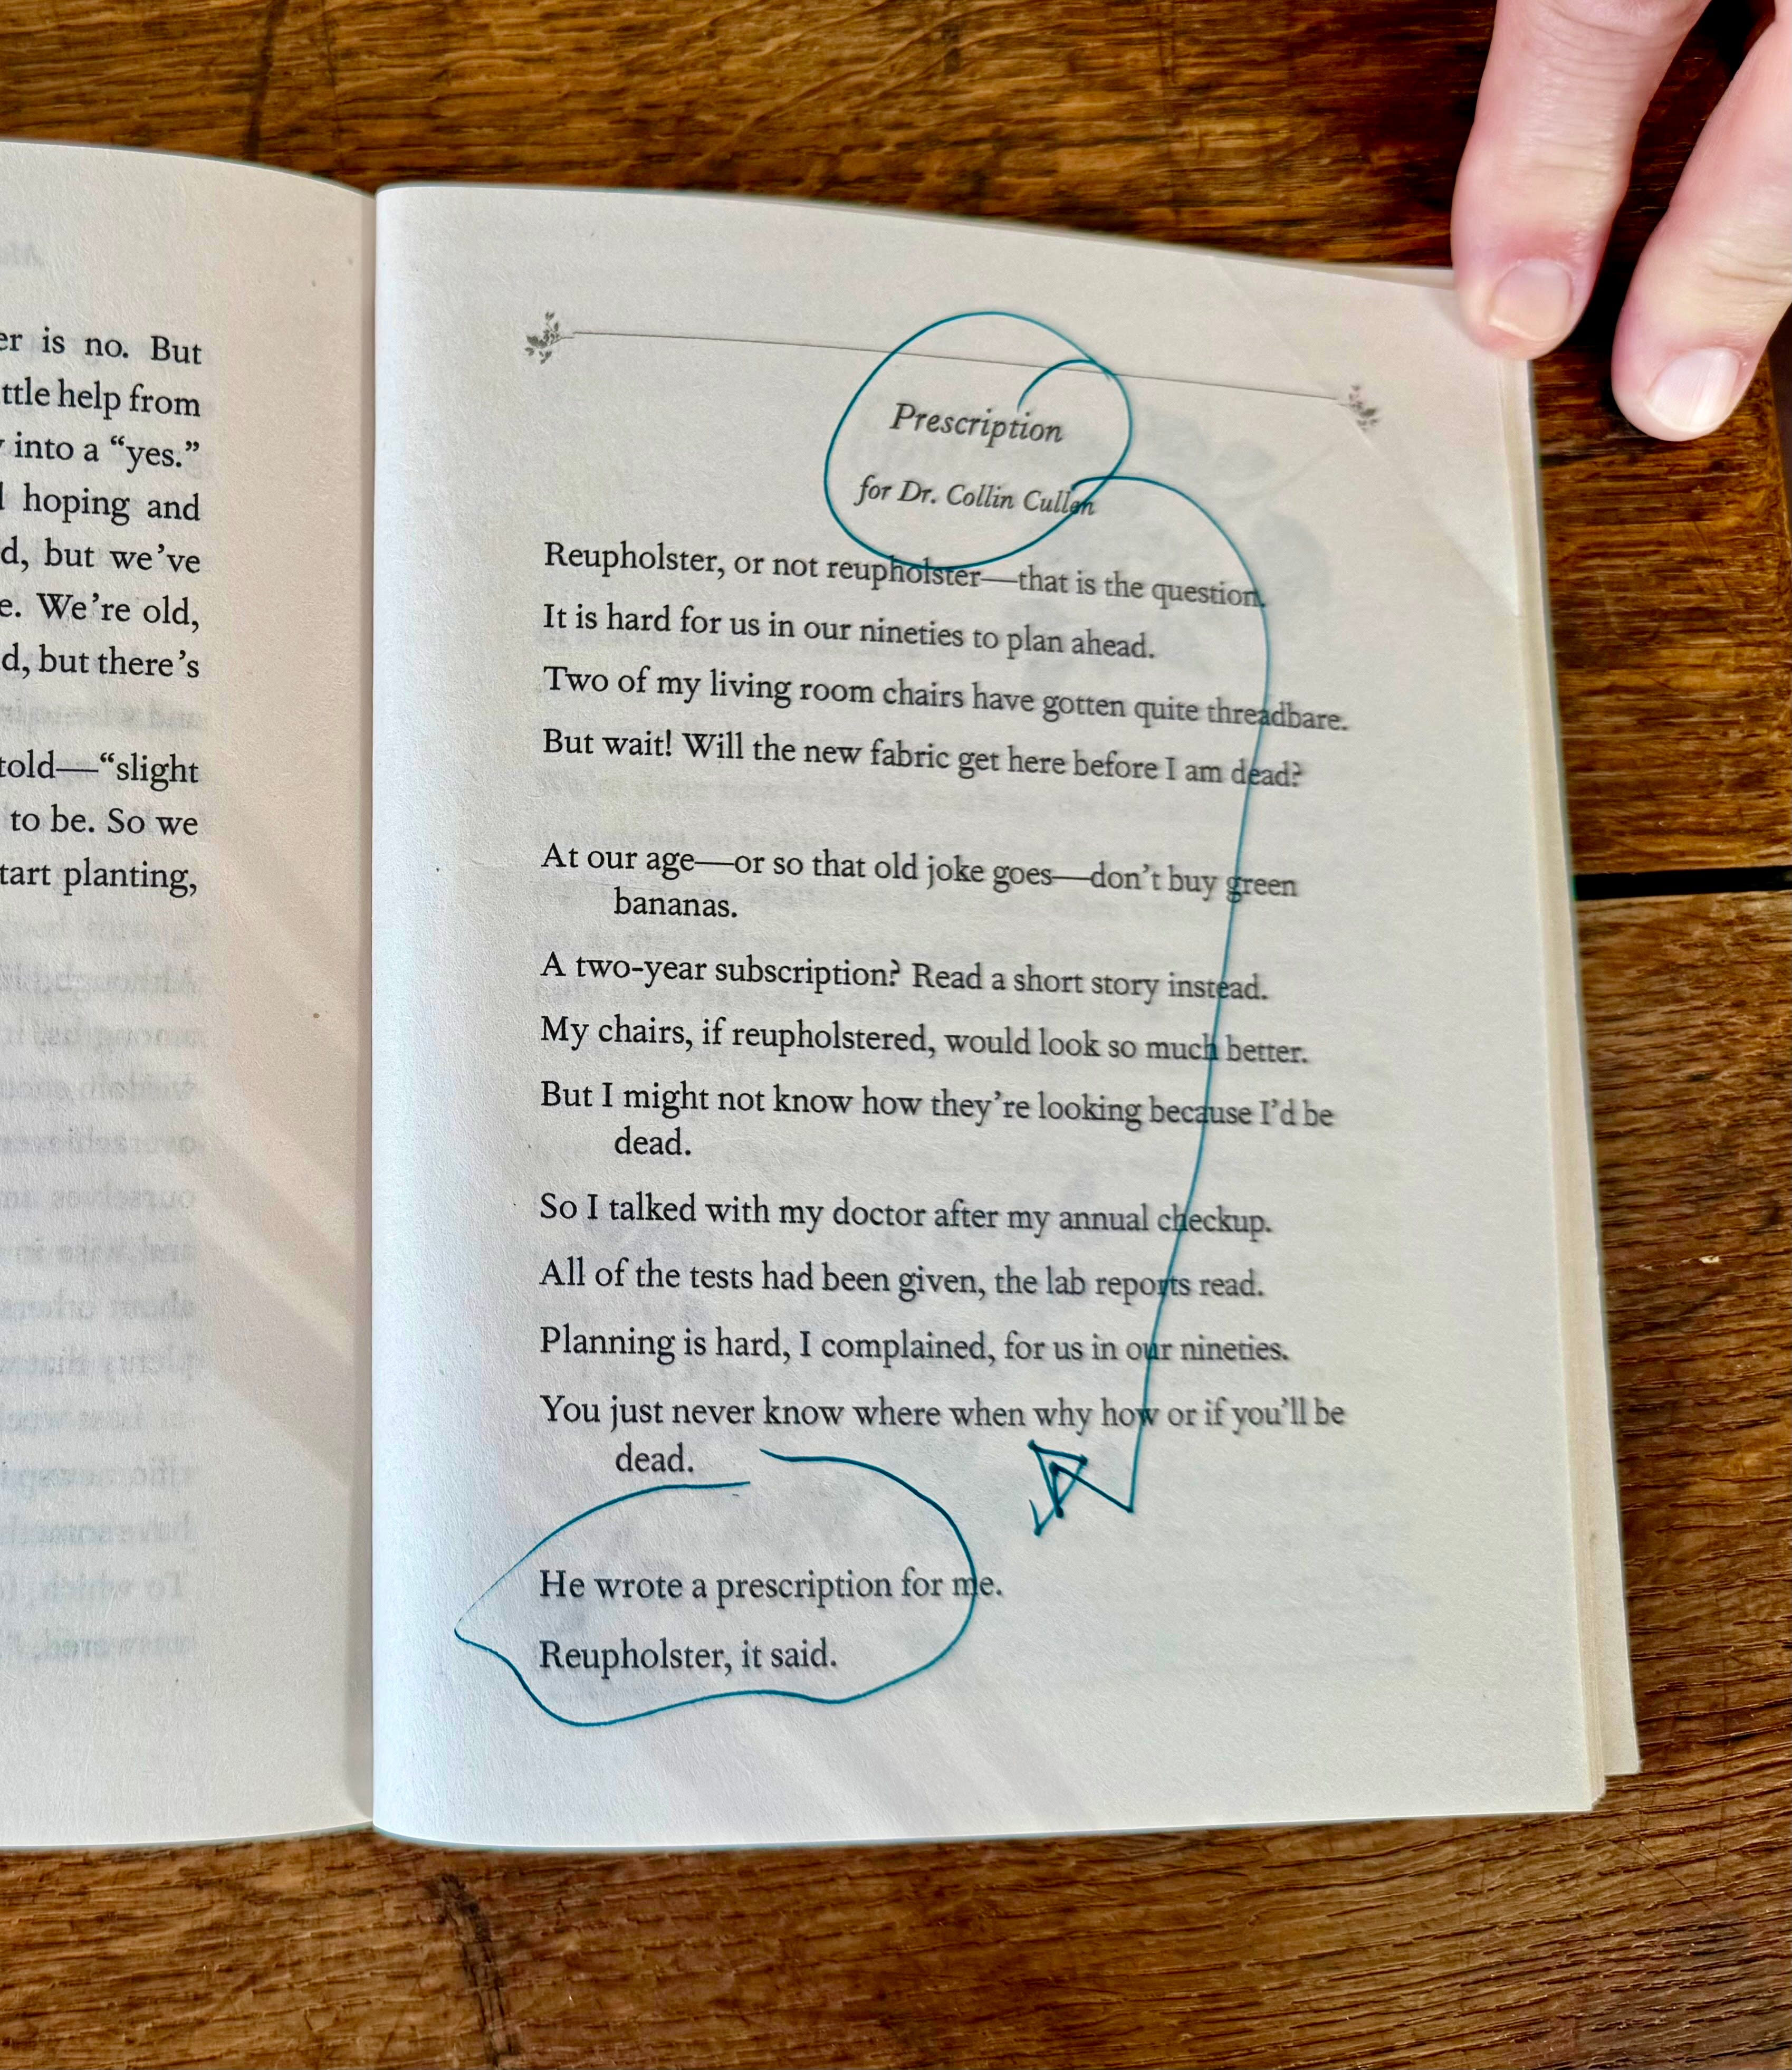 er is no. But
ttle help from
into a “yes.”
hoping and
d, but we’ve
e. We’re old,
d, but there’s
told—“slight
to be. So we
tart planting,
Prescription
for Dr. Collin Cullen
Reupholster, or not reupholster—that is the question.
It is hard for us in our nineties to plan ahead.
Two of my living room chairs have gotten quite threadbare.
But wait! Will the new fabric get here before I am dead?
At our age—or so that old joke goes—don’t buy green
bananas.
A two-year subscription? Read a short story instead.
My chairs, if reupholstered, would look so much better.
But I might not know how they’re looking because I’d be
dead.
So I talked with my doctor after my annual checkup.
All of the tests had been given, the lab reports read.
Planning is hard, I complained, for us in our nineties.
You just never know where when why how or if you’ll be
dead.
He wrote a prescription for me.
Reupholster, it said.